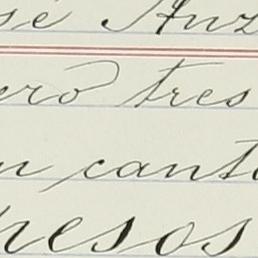 se Anz
ero tres
n canti
pesos